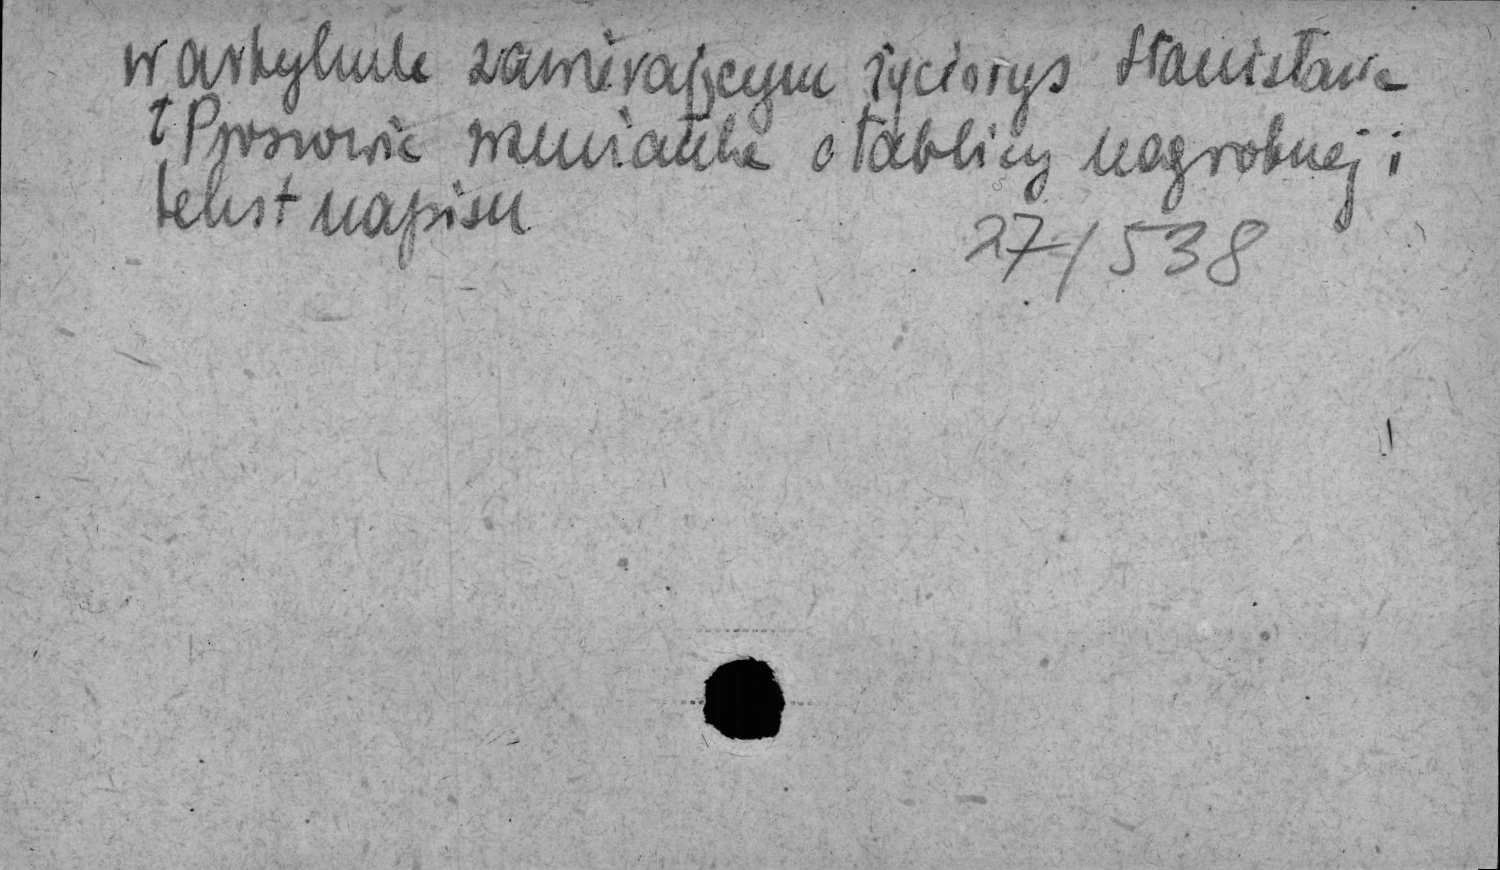 w artykule zawierającym życiorys Stanisława
z Proszowic wzmianka o tablicy nagrobnej i
tekst napisu
27/538